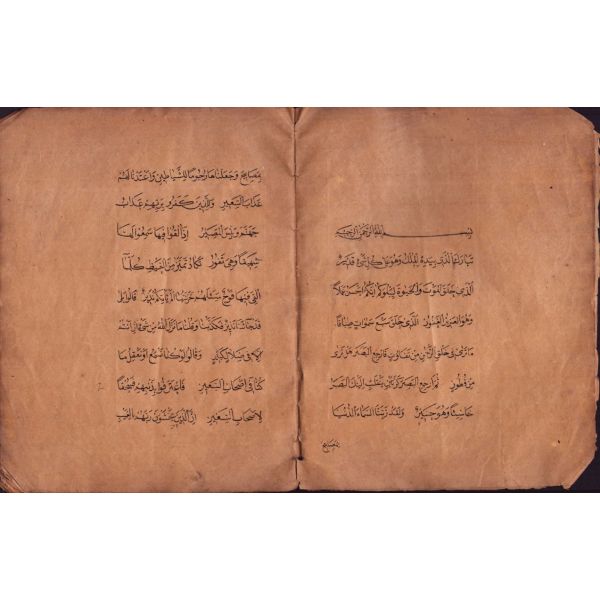 بسم الله الرحمن الرحيم
تبارك الذي بيده الملك وهو على كل شيء قدير
الذي خلق الموت والحيوة ليبلوكم ايكم احسن عملا
وهو العزيز الغفور الذي خلق سبع سموات طباقا
ما ترى في خلق الرحمن من تفاوت فارجع البصر هل ترى
من فطور ثم ارجع البصر كرتين ينقلب اليك البصر
خاسئا وهو حسير ولقد زينا السماء الدنيا
بمصابيح
بمصابيح وجعلناها رجوما للشياطين واعتدنا لهم
عذاب السعير وللذين كفروا بربهم عذاب
جهنم وبئس المصير اذا القوا فيها سمعوا لها
شهيقا وهي تفور تكاد تميز من الغيظ كلما
القي فيها فوج سالهم خزنتها الم ياتكم نذير قالوا بلى
قد جاءنا نذير فكذبنا وقلنا ما نزل الله من شيء ان انتم
الا في ضلال كبير وقالوا لو كنا نسمع او نعقل ما
كنا في اصحاب السعير فاعترفوا بذنبهم فسحقا
لاصحاب السعير ان الذين يخشون ربهم بالغيب